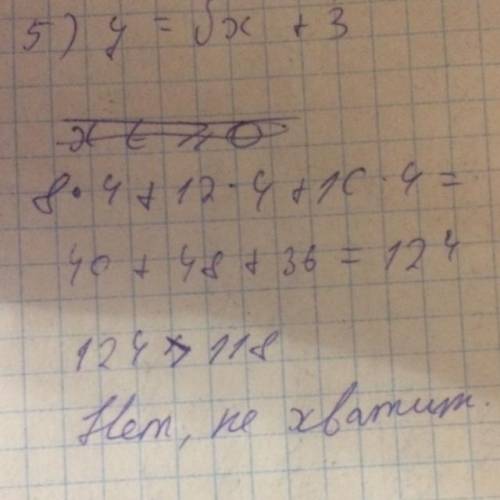 5) y = √x + 3
x ≥ 0
8·4 + 12·4 + 10·4 =
40 + 48 + 36 = 124
124 > 118
Нет, не хватит.